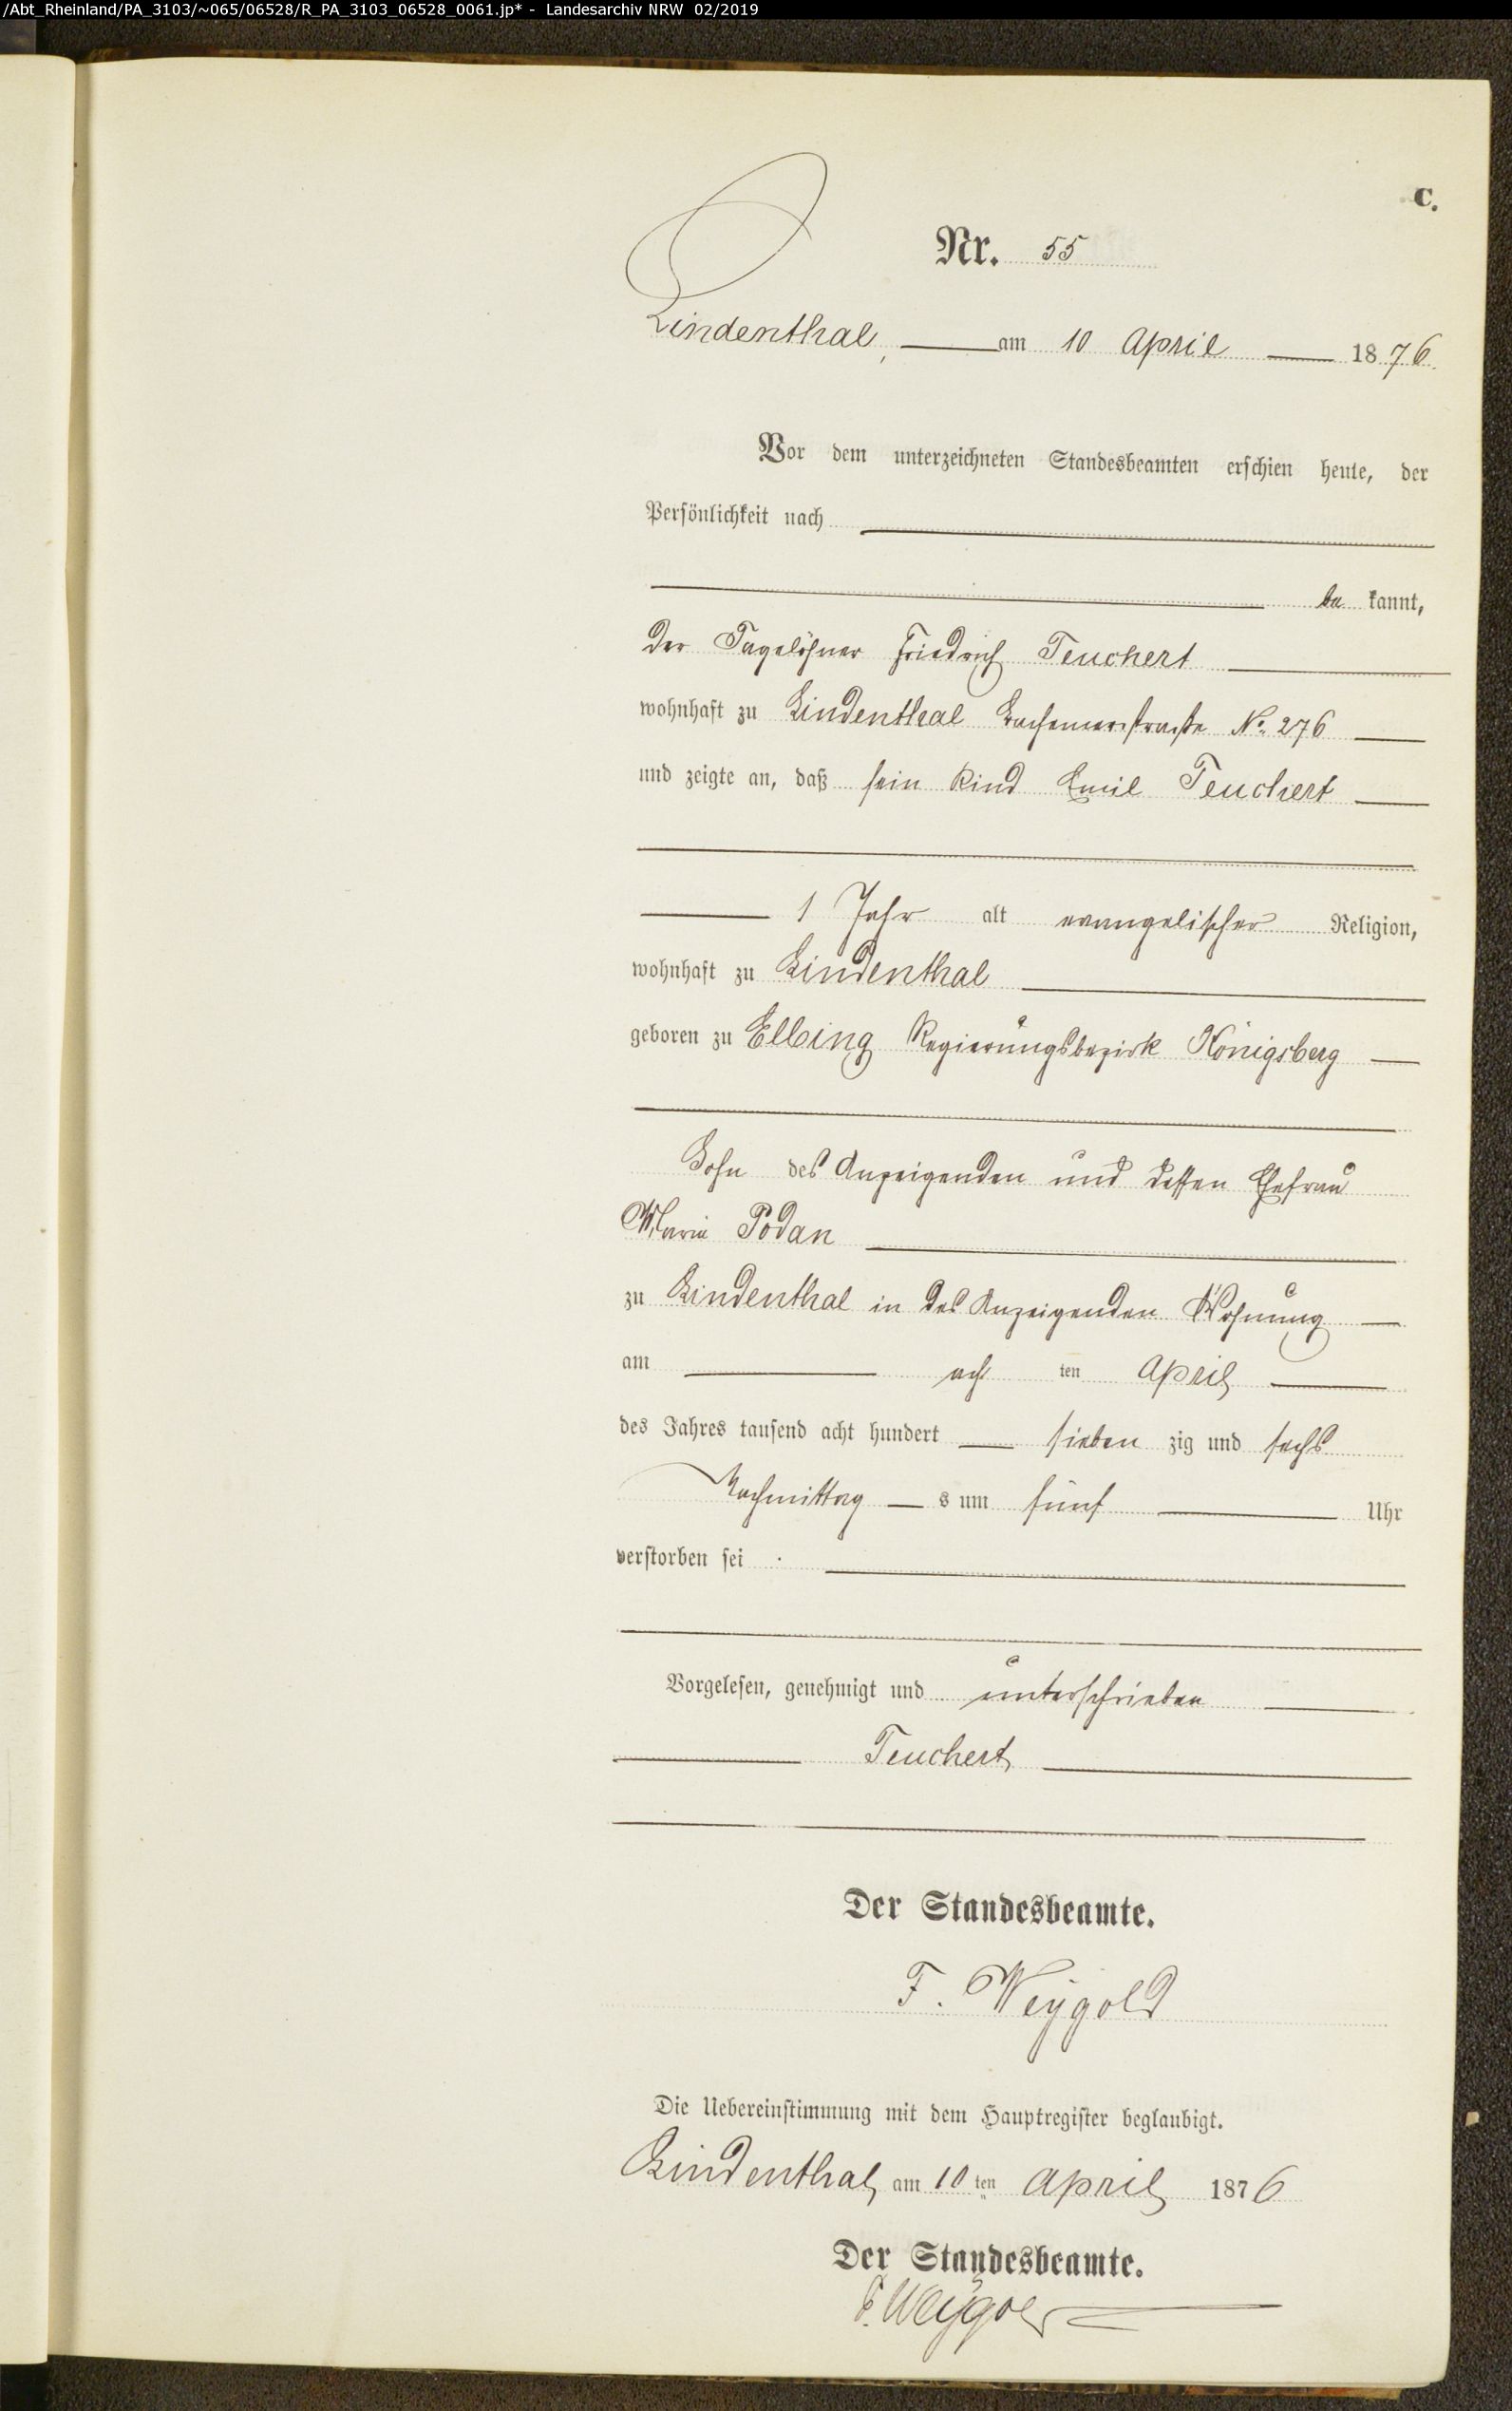 /Abt_Rheinland/PA_3103/~065/06528/R_PA_3103_06528_0061.jp* - Landesarchiv NRW 02/2019
C.
Nr. 55
Lindenthal, am 10 April 1876.
Vor dem unterzeichneten Standesbeamten erschien heute, der
Persönlichkeit nach
be kannt,
der Tagelöhner Friedrich Teuchert
wohnhaft zu Lindenthal No. 276
und zeigte an, daß sein Kind Emil Teuchert
1 Jahr alt evangelischer Religion,
wohnhaft zu Lindenthal
geboren zu Elbing Regierungsbezirk Königsberg
Sohn des Anzeigenden und dessen Ehefrau
Maria Podan
zu Lindenthal in des Anzeigenden Wohnung
am ach ten April
des Jahres tausend acht hundert sieben zig und sechs
Nachmittag s um fünf Uhr
verstorben sei .
Vorgelesen, genehmigt und unterschrieben
Teuchert
Der Standesbeamte.
F. Weygold
Die Uebereinstimmung mit dem Hauptregister beglaubigt.
Lindenthal, am 10 ten April 1876
Der Standesbeamte.
F. Weygold